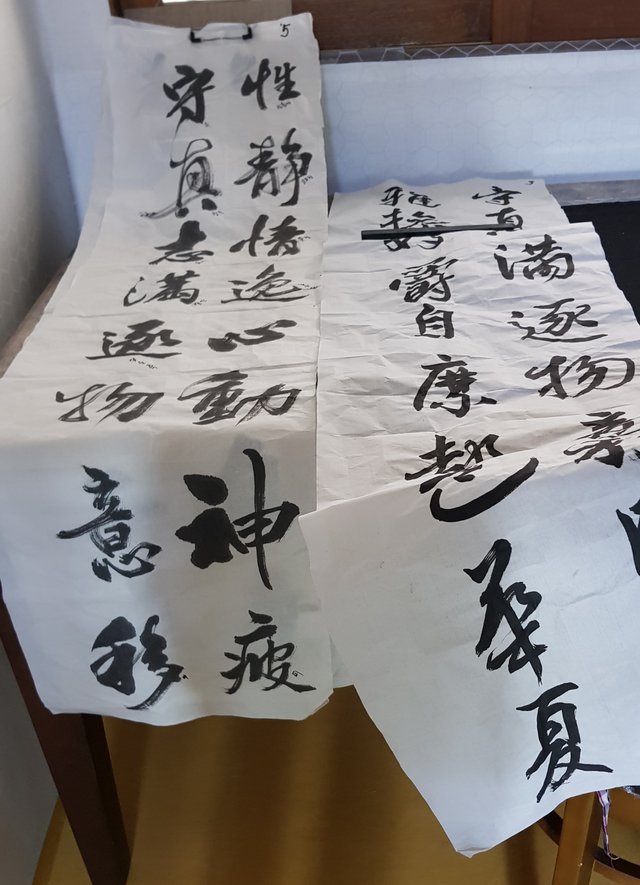 5
性静情逸心動神疲
守真志滿逐物意移
守真滿逐物
雅操好爵自縻
華夏